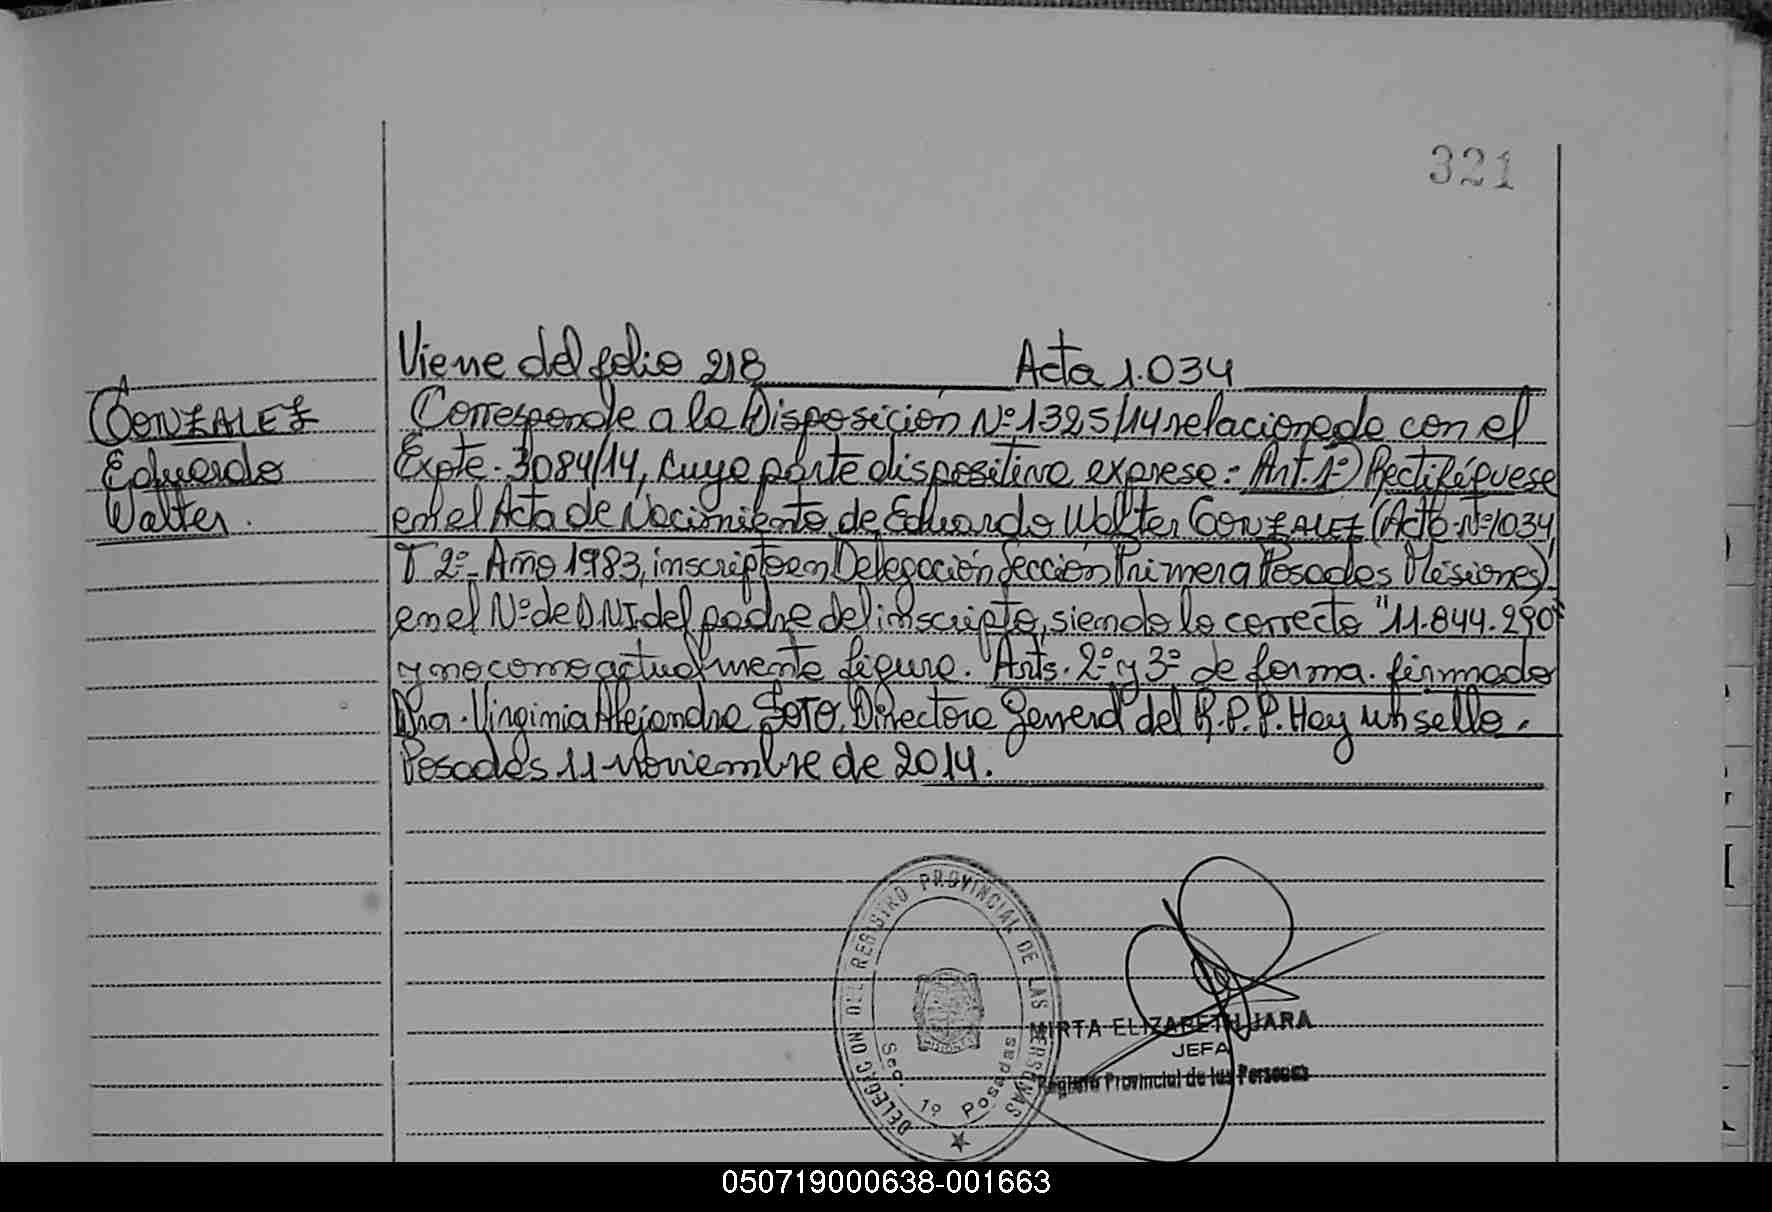 321
Viene del folio 218 Acta 1.034
GONZALEZ
Eduardo
Walter.
Corresponde a la Disposición Nº 1325/14 relacionado con el
Expte. 3084/14, cuya parte dispositiva expresa: Art. 1º) Rectifíquese
en el Acta de Nacimiento de Eduardo Walter GONZALEZ (Acta Nº 1034,
T 2º- Año 1983, inscripto en Delegación Sección Primera Posadas Misiones)
en el Nº de DNI del padre del inscripto, siendo lo correcto "11.844.290"
y no como actualmente figura. Arts. 2º y 3º de forma. firmado
Dra. Virginia Alejandra SOTO, Directora General del R.P.P. Hay un sello.
Posadas 11 noviembre de 2014.
DELEGACION DEL REGISTRO PROVINCIAL DE LAS PERSONAS
Sec. 1º Posadas
MIRTA ELIZABETH JARA
JEFA
Registro Provincial de las Personas
050719000638-001663